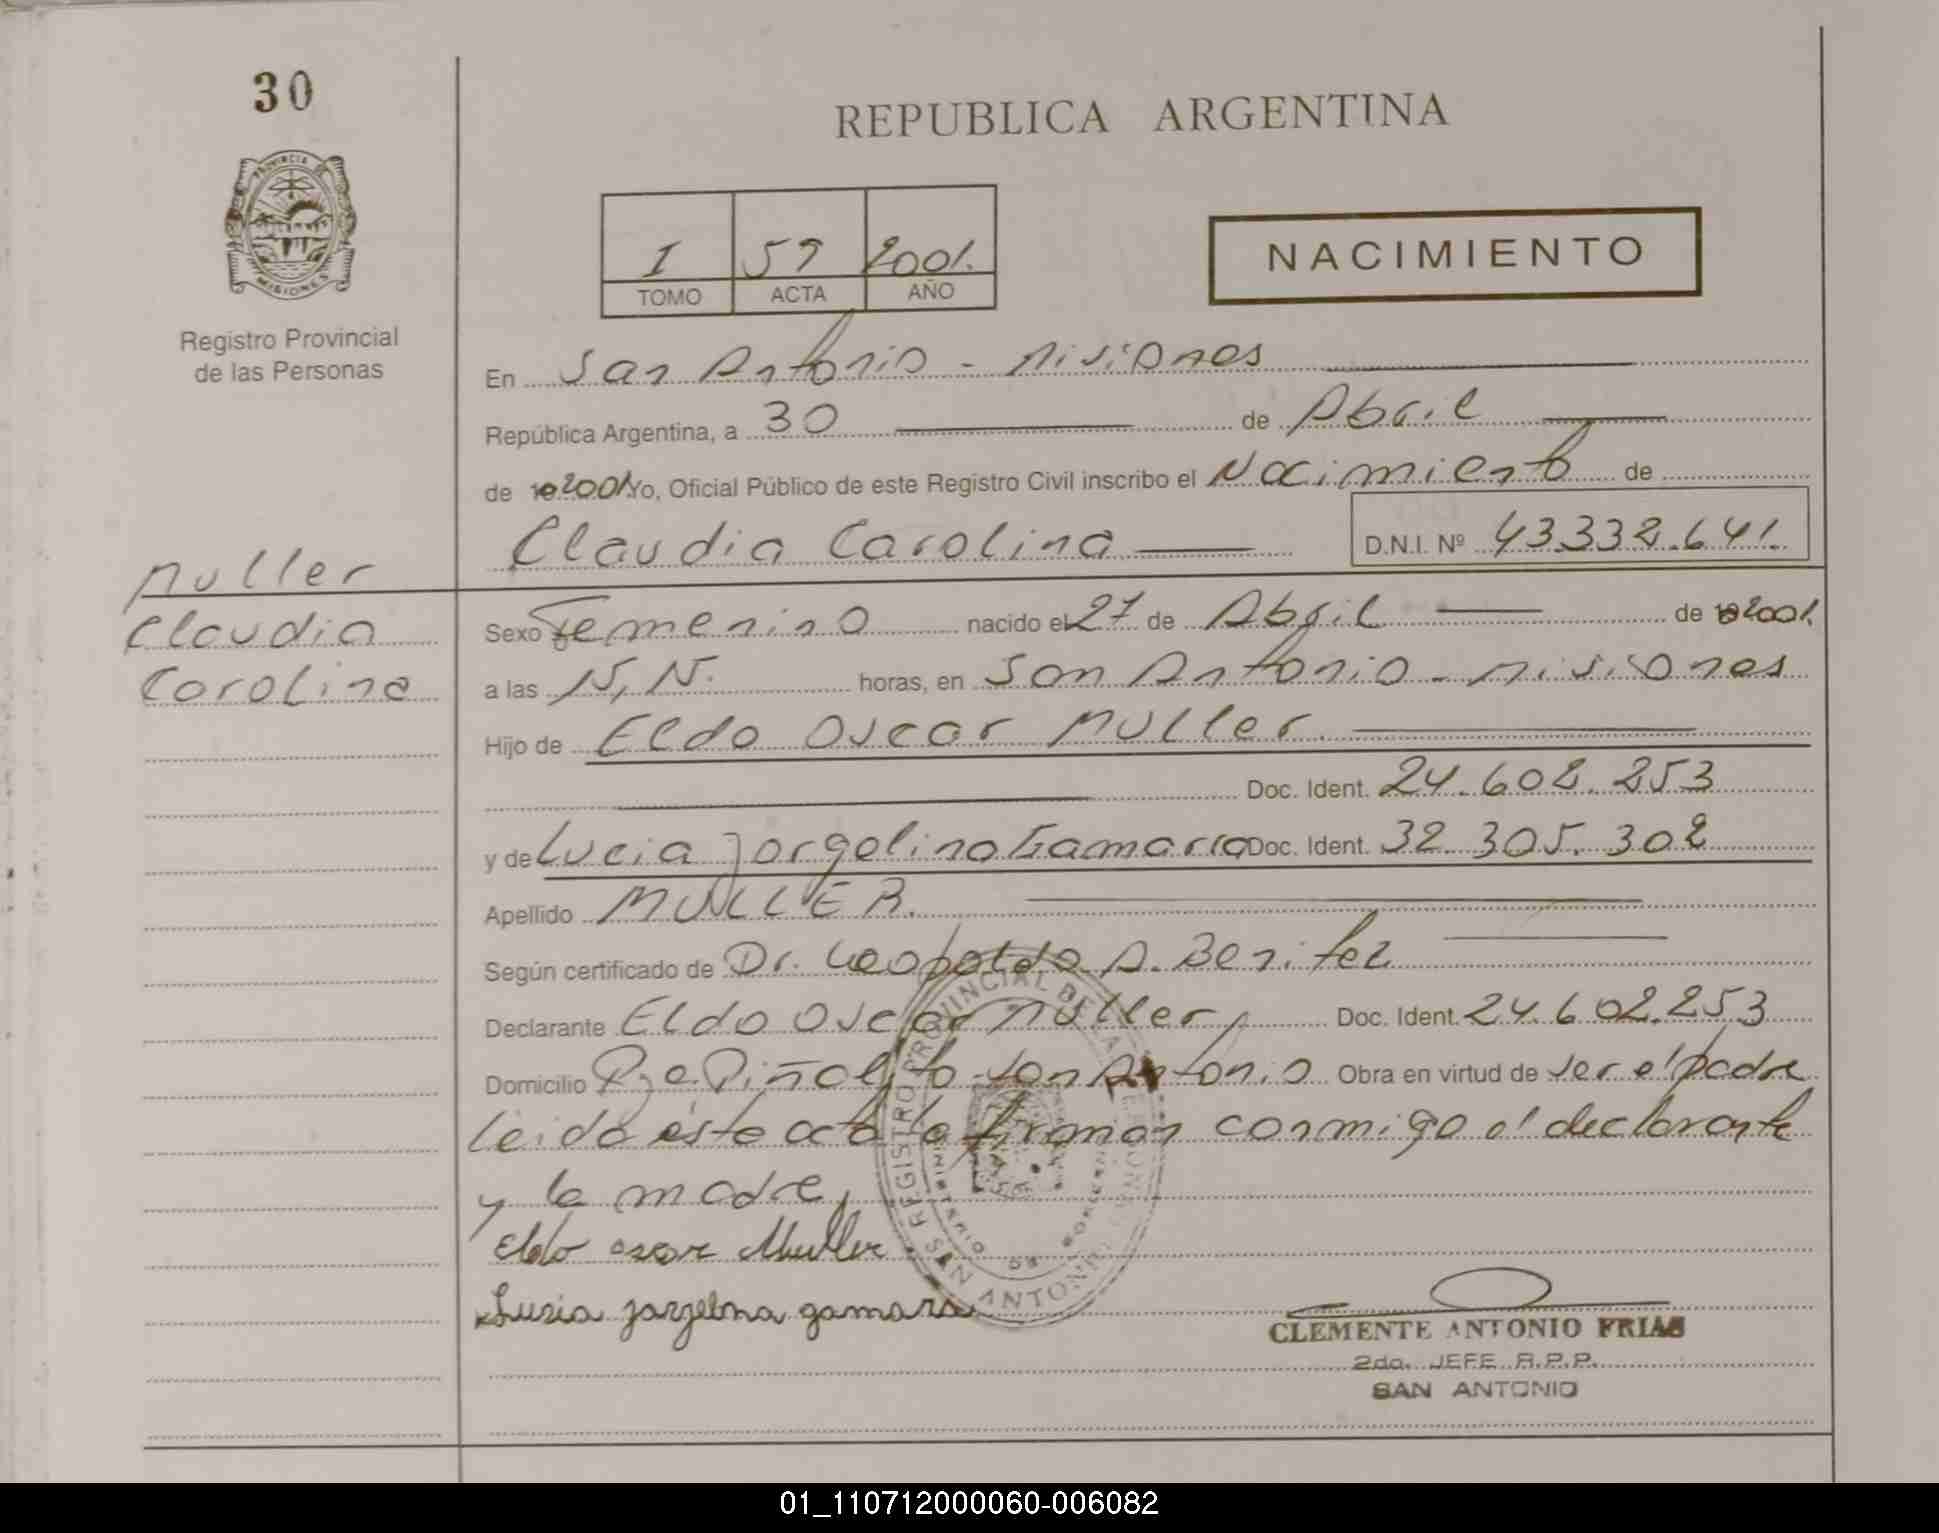 30
PROVINCIA DE
MISIONES
Registro Provincial
de las Personas
REPUBLICA ARGENTINA
I 59 2001.
TOMO ACTA AÑO
NACIMIENTO
En San Antonio - Misiones
República Argentina, a 30 de Abril
de 2001 Yo, Oficial Público de este Registro Civil inscribo el Nacimiento de
Claudia Carolina D.N.I. Nº 43.332.641.
Muller
Claudia
Carolina
Sexo Femenino nacido el 27 de Abril de 2001.
a las 15,15. horas, en San Antonio - Misiones
Hijo de Eldo Oscar Muller.
Doc. Ident. 24.602.253
y de Lucia Jorgelina Gamarra Doc. Ident. 32.305.302
Apellido MULLER.
Según certificado de Dr. Leopoldo A. Benitez
Declarante Eldo Oscar Muller, Doc. Ident. 24.602.253
Domicilio Pje. Piñalito - San Antonio Obra en virtud de ser el padre
Leida ésta acta la firman conmigo el declarante
y la madre,
Eldo oscar Muller
Lusia jorjelina gamara
REGISTRO PROVINCIAL DE LAS PERSONAS
SAN ANTONIO
CLEMENTE ANTONIO FRIAS
2do. JEFE R.P.P.
SAN ANTONIO
01_110712000060-006082